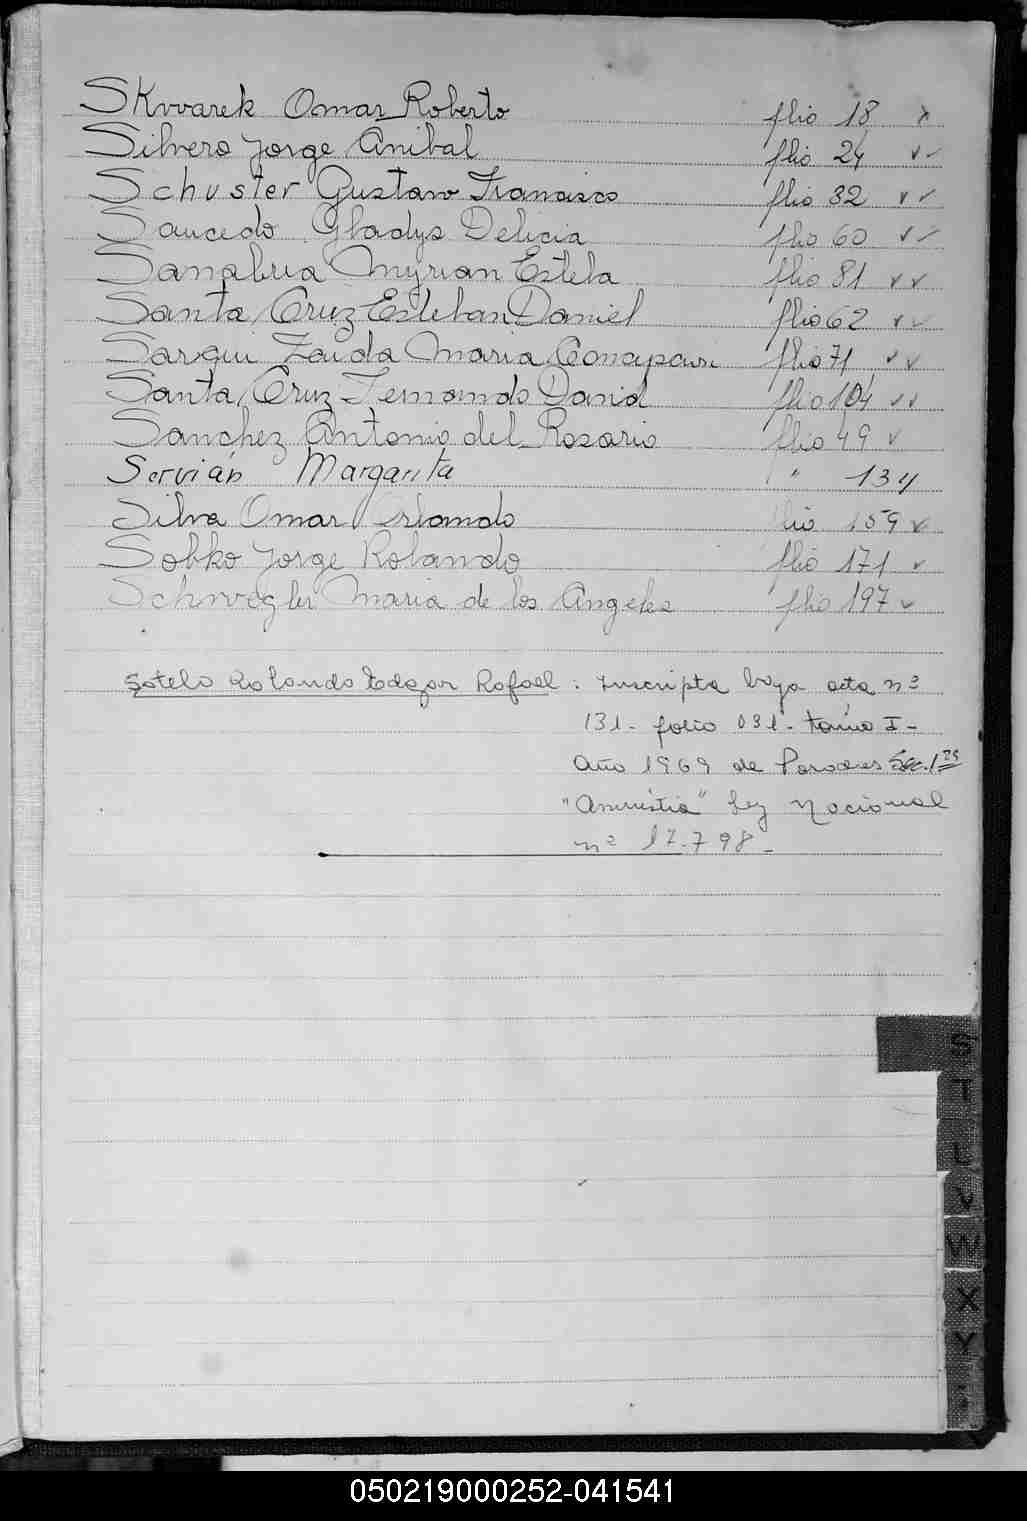 Skwarek Omar Roberto flio 18 x
Silvero Jorge Anibal flio 24 ✓✓
Schuster Gustavo Francisco flio 32 ✓✓
Saucedo Gladys Delicia flio 60 ✓✓
Sanabria Myrian Estela flio 81 ✓✓
Santa Cruz Esteban Daniel flio 62 ✓✓
Sarqui Zaida Maria flio 71 ✓✓
Santa Cruz Fernando David flio 104 ✓✓
Sanchez Antonio del Rosario flio 49 ✓
Servián Margarita " 134
Silva Omar Orlando flio 159 ✓
Sobko Jorge Rolando flio 171 ✓
Schwegler Maria de los Angeles flio 197 ✓
Sotelo Rolando Edgar Rafael : Inscripta bajo acta nº
131 - folio 031 - tomo I -
Año 1969 de Sec. 1ra
"Amnistia" Ley Nacional
nº 17.798 -
S
T
U
V
W
X
Y
050219000252-041541